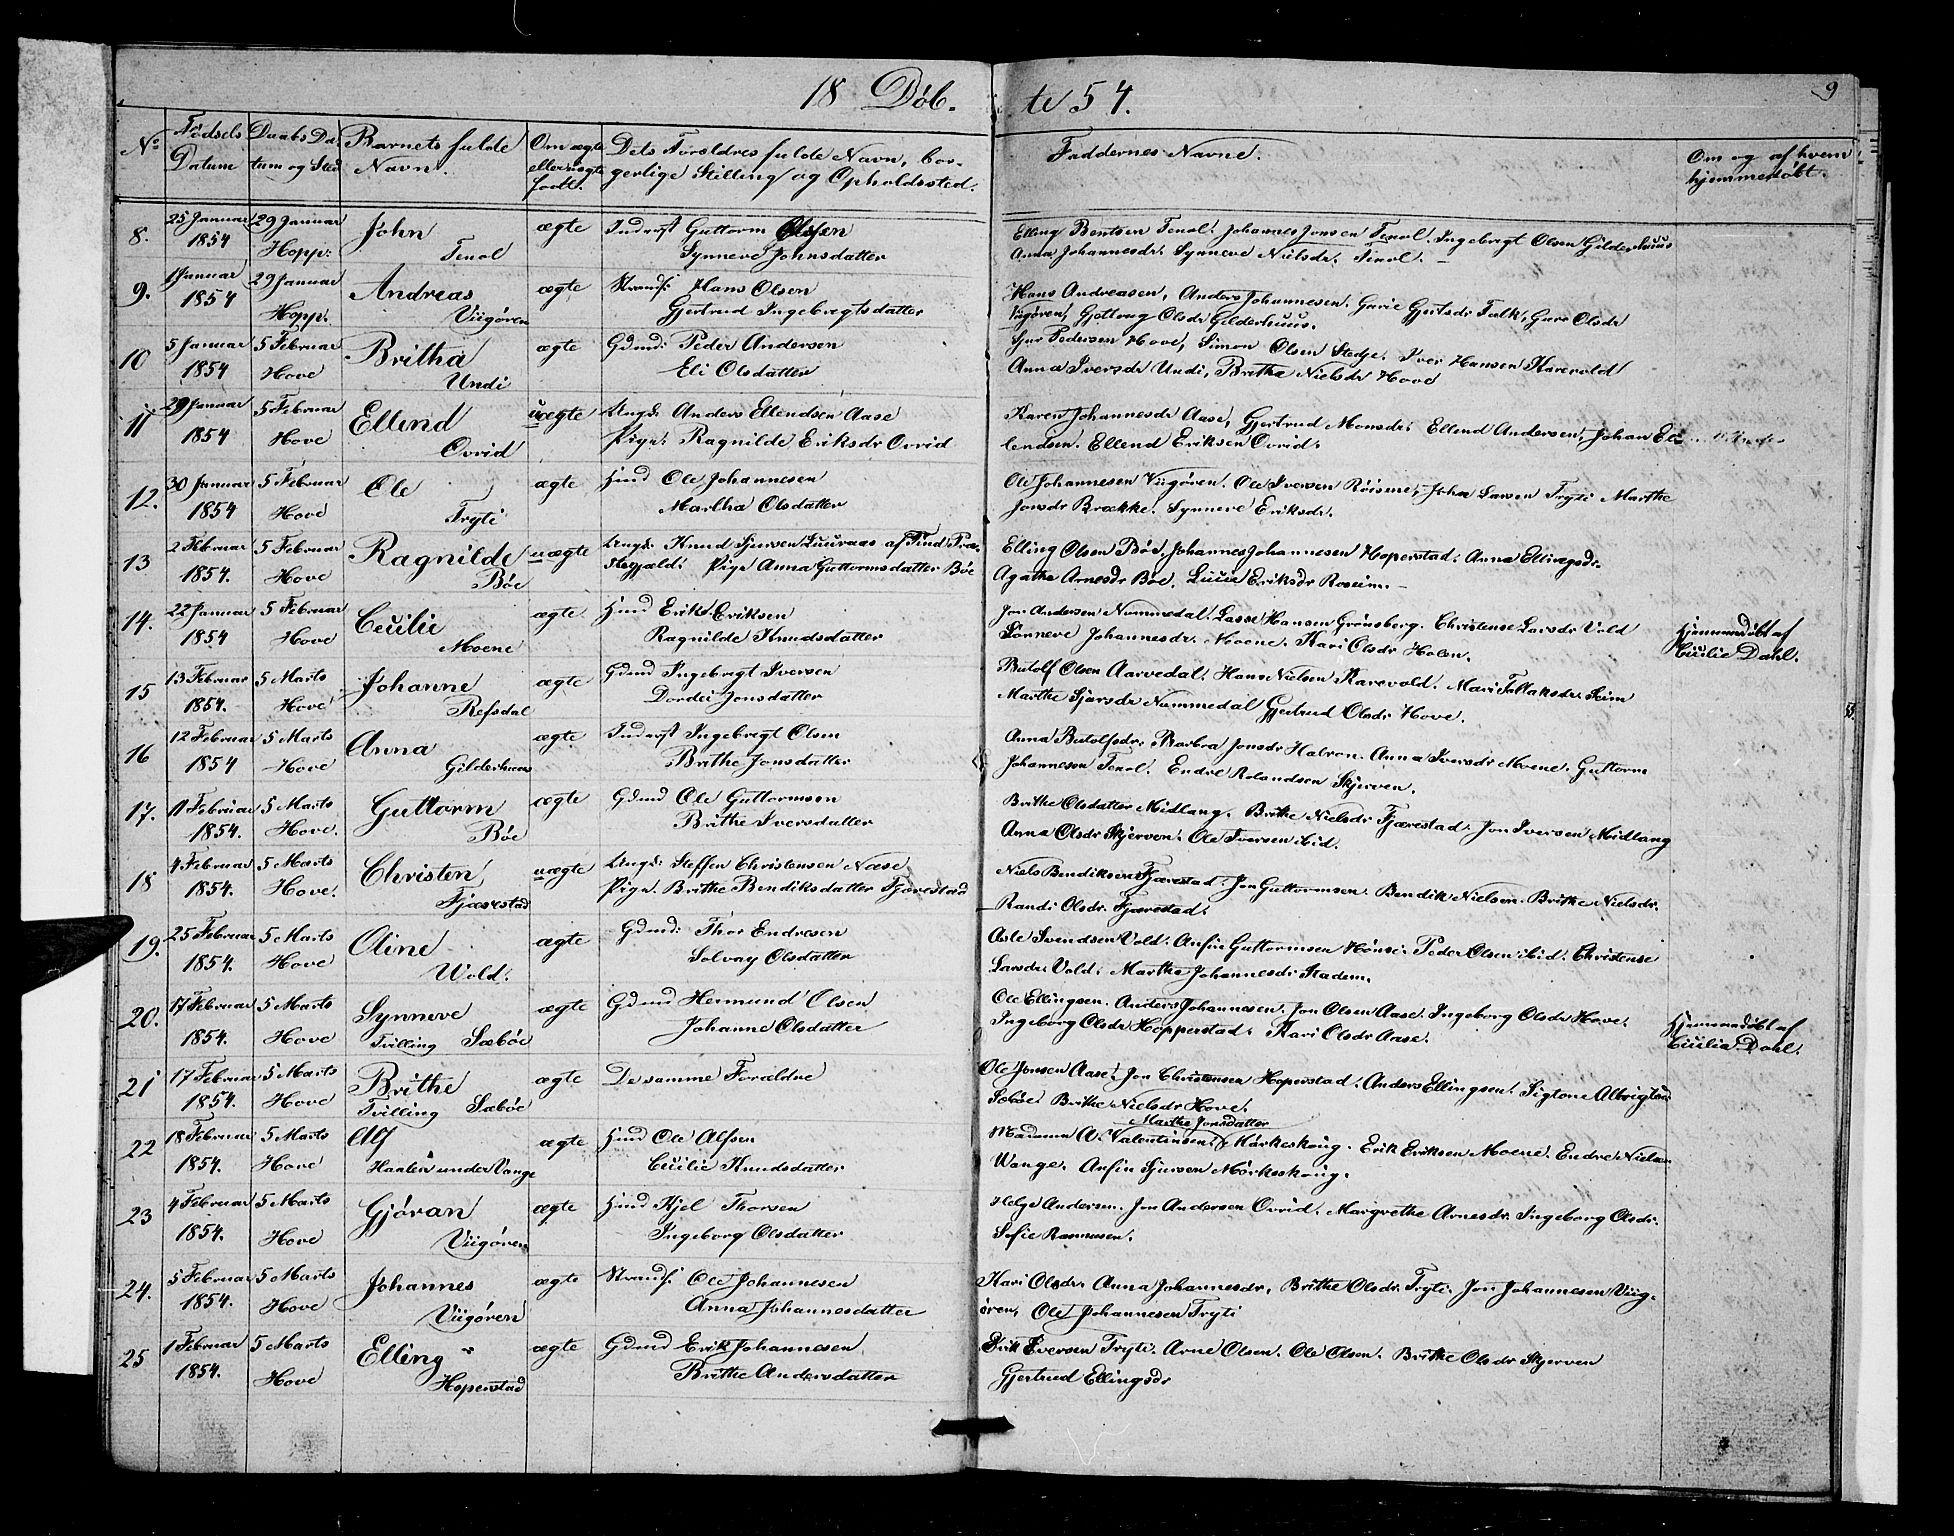 18 Döb-
te 54.
9
No
Fødsels Datum
Daabs Datum og Sted
Barnets fulde Navn.
Om ægte eller uægte født.
Dets Forældres fulde Navn, borgerlige Stilling og Opholdssted.
Faddernes Navne.
Om og af hvem hjemmedøbt.
8. 25 Januar 29 Januar John ægte Inderst Guttorm Olsen Elling Bentsen Tenol. Johannes Jonsen Tenol. Ingebrigt Olsen Gilderhuus
1854 Hopp: Tenol Synneve Johnsdatter Anna Johannesdr. Synneve Nielsdr. Tenol.
9. 1 Januar 29 Januar Andreas ægte Strands: Hans Olsen Hans Andreasen, Anders Johannesen. Gurie Gjertsdr Falk, Guro Olsdr
1854 Hopp. Viigøren Gjertrud Ingebregtsdatter Viigøren, Gjottrug Olsdr Gilderhuus.
10 5 Januar 5 Februar Britha ægte Gdmd: Peder Andersen Sjur Pedersen Hove, Simon Olsen Stedje. Iver Hansen Karevold
1854 Hove Undi Eli Olsdatter Anna Iversdr Undi, Britha Nielsdr Hove
11 29 Januar 5 Februar Ellend uægte Ungk: Anders Ellendsen Aase Karen Johannesdr Aase, Gjertrud Monsdr. Ellend Andersen, Johan El-
1854 Hove Ovrid Pige: Ragnilde Eriksdr Ovrid lendsen. Ellend Eriksen Ovrid.
12. 30 Januar 5 Februar Ole ægte Hmd Ole Johannesen Ole Johannesen Viigøren. Ole Iversen Röisene, John Larsen Tryti Marthe
1854 Hove Tryti Martha Olsdatter Jonsdr Brække. Synneve Eriksdr.
13 2 Februar 5 Februar Ragnilde uægte Ungk: Knud Sjursen Luuraas af Tind Præ- Elling Olsen Böe, Johannes Johannesen Hoperstad. Anna Ellingsdr.
1854. Hove Böe stegjæld. Pige Anna Guttormsdatter Böe Agathe Arnesdr Böe. Lucie Eriksdr Roseim.
14. 22 Januar 5 Februar Cecilie ægte Hmd Erik Eriksen Jon Andersen Nummedal. Lasse Hansen Grönsberg. Christense Larsdr Vold Hjemmedøbt af
1854 Hove Moene Ragnilde Knudsdatter Sönneve Johannesdr. Moene. Kari Olsdr Holen. Cecilie Dahl.
15 13 Februar 5 Marts Johanne ægte Gdmd Ingebregt Iversen Butolf Olsen Aarvedal. Hans Nielsen Karevold. Mari Follaksdr Seim
1854. Hove Refsdal Dordei Jonsdatter Marthe Sjursdr Nummedal Gjertrud Olsdr Hove.
16 12 Februar 5 Marts Anna ægte Inderst Ingebregt Olsen Anna Butolfsdr. Barbra Jonsdr Halvron. Anna Iversdr Moene. Guttorm
1854 Hove Gilderhuus Brithe Jonsdatter Johannesen Tenol. Endre Rolandsen Skjerven.
17. 11 Februar 5 Marts Guttorm ægte Gdmd Ole Guttormsen Brithe Olsdatter Midlang. Brithe Nielsdr Fjærestad. Jon Iversen Midlang
1854. Hove. Böe Brithe Iversdatter Anna Olsdr Skjerven. Ole Iversen ibid.
18 4 Februar 5 Marts Christen uægte Ungk: Steffen Christensen Næse Niels Bendiksen Fjærestad. Jon Guttormsen. Bendik Nielsen. Brithe Nielsdr.
1854. Hove. Fjærestad Pige. Brithe Bendiksdatter Fjærestad Randi Olsdr. Fjærestad.
19. 25 Februar 5 Marts Oline ægte Gdmd: Thor Endresen Asle Svendsen Vold. Anfin Guttormsen Hönsi. Peder Olsen ibid. Christense
1854. Hove Wold. Solvay Olsdatter Larsdr Vold. Marthe Johannesdr Stadem.
20. 17 Februar 5 Marts Synneve ægte Gdmd Hermund Olsen Ole Ellingsen. Anders Johannesen. Jon Olsen Aase. Ingeborg Olsdr Hove. Hjemmedøbt af
1854. Hove Tvilling Sæböe Johanne Olsdatter Ingeborg Olsdr Hopperstad. Kari Olsdr Aase. Cecilia Dahl.
21 17 Februar 5 Marts Brithe ægte De samme Forældre Ole Jonsen Aase. Jon Christensen Hoperstad. Anders Ellingsen. Sigtone Albrigtsdr
1854. Hove Tvilling Sæböe Seböe. Brithe Nielsdr Hove.
Marthe Jonsdatter
22 18 Februar 5 Marts Alf ægte Hmd Ole Alfsen Madamm A. Valentinsen. Mörkeskoug. Erik Eriksen Moene. Endre Nielsen
1854. Hove Haalen under Vange Cecilie Knudsdatter Wange. Anfin Sjursen Mörkeskoug.
23 4 Februar 5 Marts Gjöran ægte Hmd Kjel Thorsen Helge Andersen. Jon Andersen Ovrid. Margrethe Arnesdr. Ingeborg Olsdr.
1854. Hove Viigøren Ingeborg Olsdatter Sofie Rasmusen.
24. 5 Februar 5 Marts Johannes ægte Strands: Ole Johannesen Kari Olsdr. Anna Johannesdr, Brithe Olsdr. Tryti. Jon Johannesen Viig-
1854. Hove Viigøren Anna Johannesdatter øren, Ole Johannesen Tryti
25 1 Februar 5 Marts Elling ægte Gdmd Erik Johannesen Erik Iversen Tryti. Arne Olsen. Ole Olsen. Brithe Olsdr Skjerven
1854. Hove Hoperstad Brithe Andersdatter Gjertrud Ellingsdr